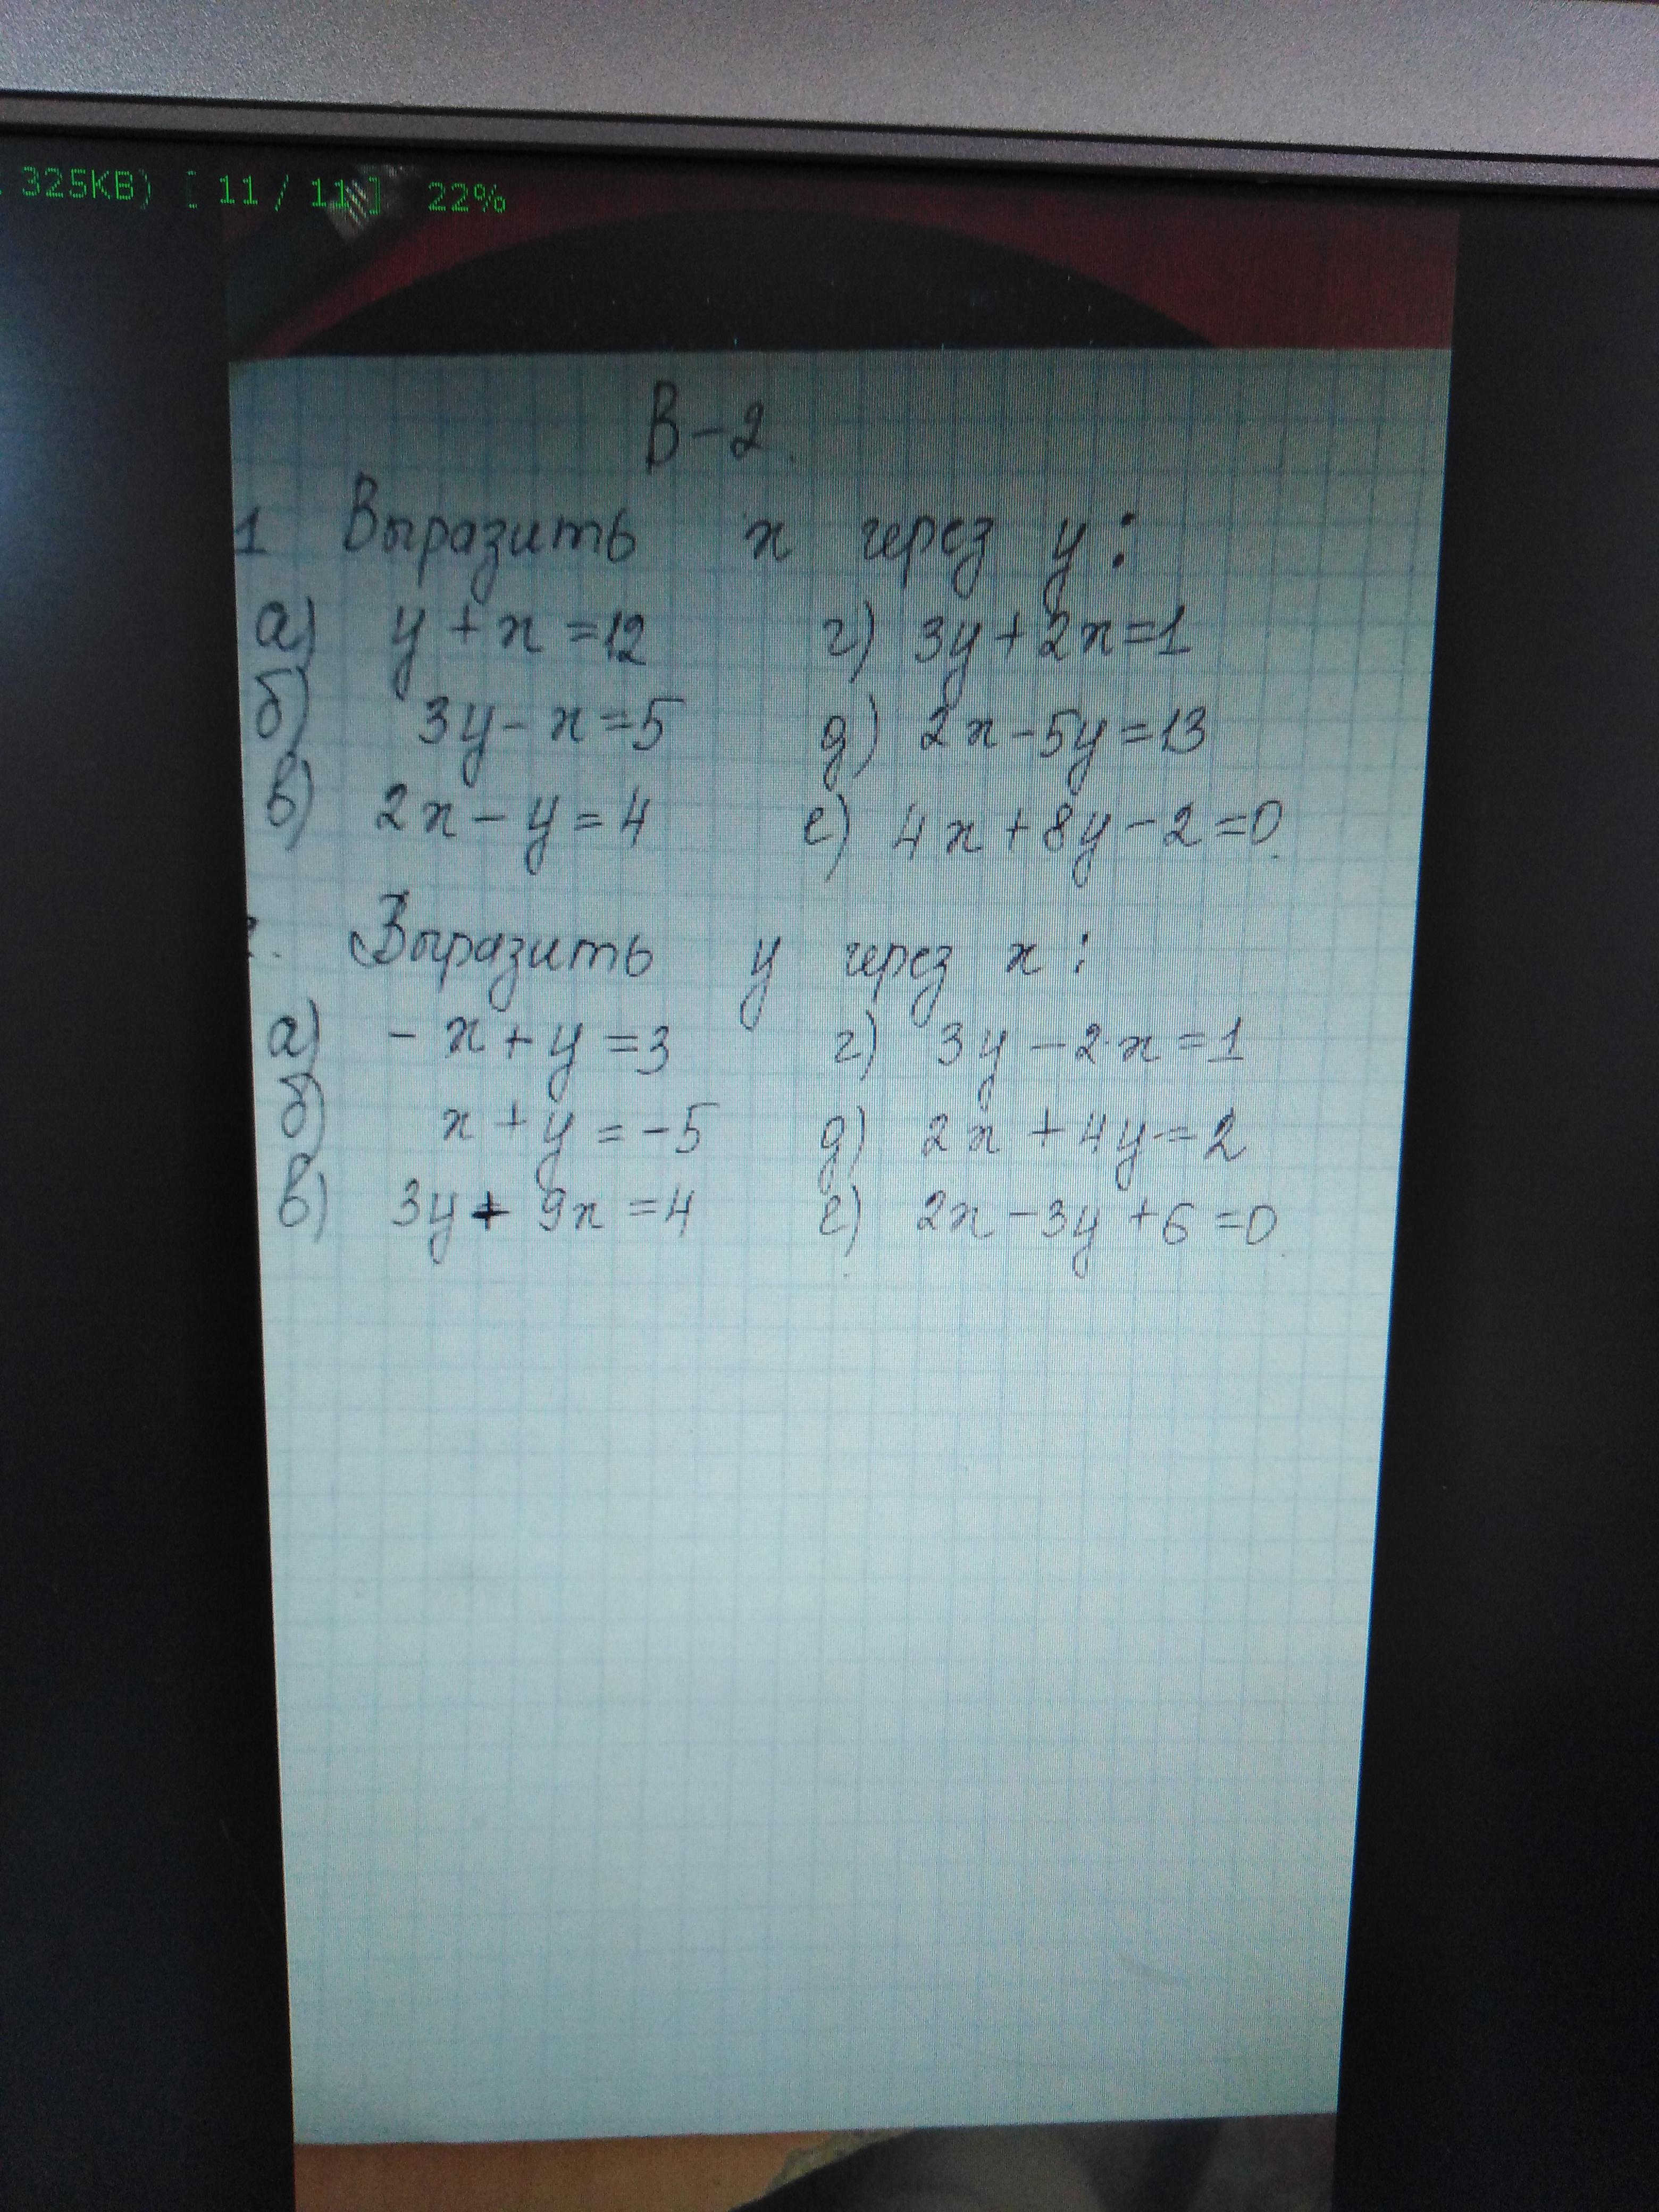 325KB) [ 11 / 11 ] 22%
В-2.
1 Выразить x через y:
а) y + x = 12 г) 3y + 2x = 1
б) 3y - x = 5 д) 2x - 5y = 13
в) 2x - y = 4 е) 4x + 8y - 2 = 0.
. Выразить y через x:
а) - x + y = 3 г) 3y - 2x = 1
б) x + y = -5 д) 2x + 4y = 2
в) 3y + 9x = 4 е) 2x - 3y + 6 = 0.